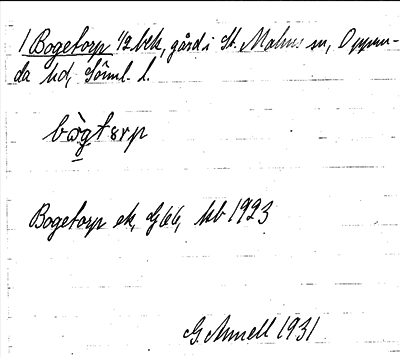 1 Bogetorp 1/2 bek, gård i St. Malms sn, Oppun-
da hd, Söml. l.
bògtərp
Bogetorp ek, G66, kb 1923
G. Annell 1931